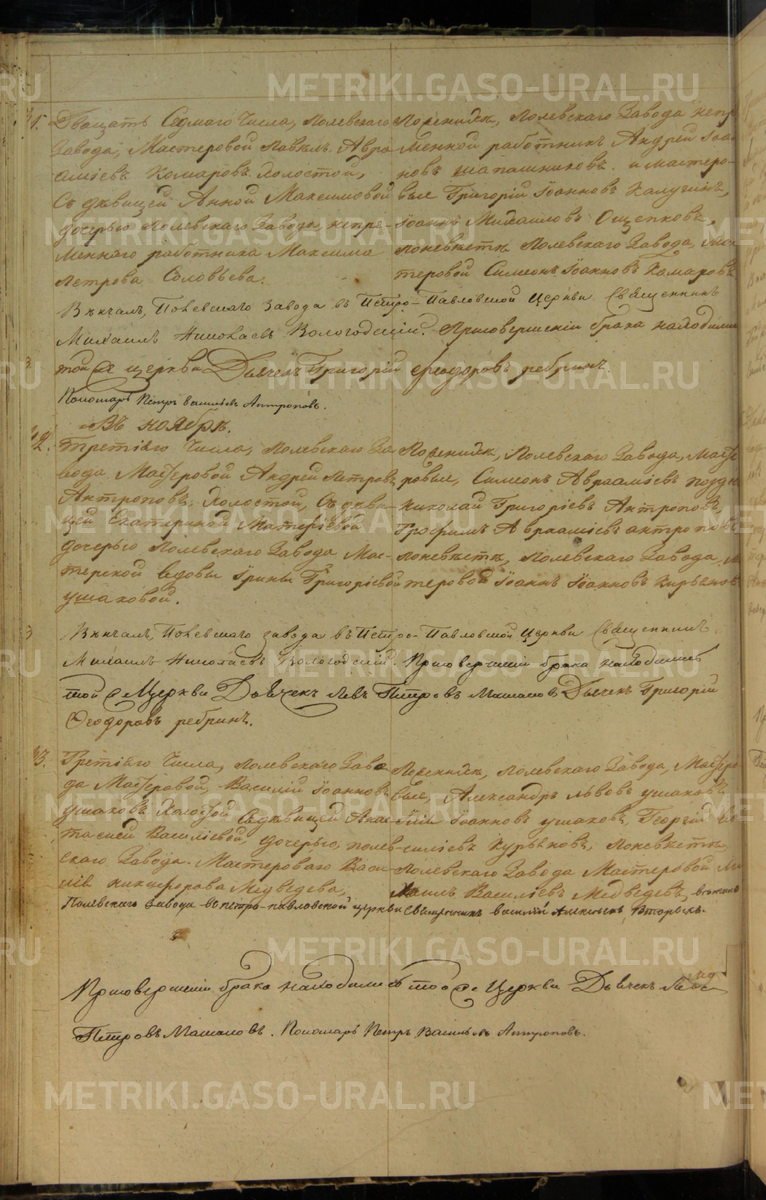 METRIKI.GASO-URAL.RU
Двадцать Седмаго Числа, Полевскаго
Завода, Мастеровой Павелъ Авра-
амiевъ Комаровъ Холостой,
Съ дѣвицей Анной Максимовой
дочерью Полевскаго Завода, непре-
меннаго работника Максима
Петрова Соловьева.
По женихѣ, Полевскаго Завода непре-
менной работникъ Андрей Iоан-
новъ Шапашниковъ и мастеро-
вые Григорiй Iоанновъ Калугинъ,
Iоаннъ Михаиловъ Ощепковъ,
По невѣстѣ Полевскаго Завода, Мас-
теровой Симеонъ Iоанновъ Комаровъ
Вѣнчалъ, Полевскаго завода въ Петро-Павловской Церкви Священникъ
Михаилъ Николаевъ Вологодскiй. При совершенiи брака находились
той же церкви Дьячекъ Григорiй Феодоровъ Ребринъ.
Пономарь Петръ Васильевъ Антроповъ.
Въ ноябрѣ.
42.
Третiяго Числа, Полевскаго За-
вода Мастеровой Андрей Петровъ
Антроповъ, Холостой, Съ дѣви-
цей Екатериной Матвѣевой
дочерью Полевскаго Завода Мас-
терской вдовы Ирины Григорiевой
Ушаковой.
По женихѣ, Полевскаго Завода, Масте-
ровые, Симеонъ Авраамiевъ
Николай Григорiевъ Антроповъ,
Трофимъ Авраамiевъ Антроповъ
По невѣстѣ, Полевскаго Завода, Мас-
теровой Iоаннъ Iоанновъ Курбановъ
Вѣнчалъ, Полевскаго завода въ Петро-Павловской Церкви Священникъ
Михаилъ Николаевъ Вологодскiй. При совершенiи брака находились
той же Церкви Дьячекъ Левъ Петровъ Машановъ Дьячекъ Григорiй
Феодоровъ Ребринъ.
43.
Третiяго Числа, Полевскаго Заво-
да Мастеровой, Василiй Iоанновъ
Ушаковъ Холостой Съ дѣвицей Ана-
стасiей Василiевой, дочерью, Полев-
скаго Завода. Мастероваго Васи-
лiя Никифорова Медведева,
По женихѣ, Полевскаго Завода, Мастеро-
вые, Александръ Львовъ Ушаковъ
Iоанновъ Ушаковъ, Георгiй Ва-
силiевъ Курбановъ, По невѣстѣ
Полевскаго Завода Мастеровой Ми-
хаилъ Василiевъ Медведевъ, вѣнчалъ
Полевскаго завода во петро-павловской церкви Священникъ Василiй Алексѣевъ Вторыхъ.
При совершенiи брака находились той же Церкви Дьячекъ Левъ
Петровъ Машановъ. Пономарь Петръ Васильевъ Антроповъ.